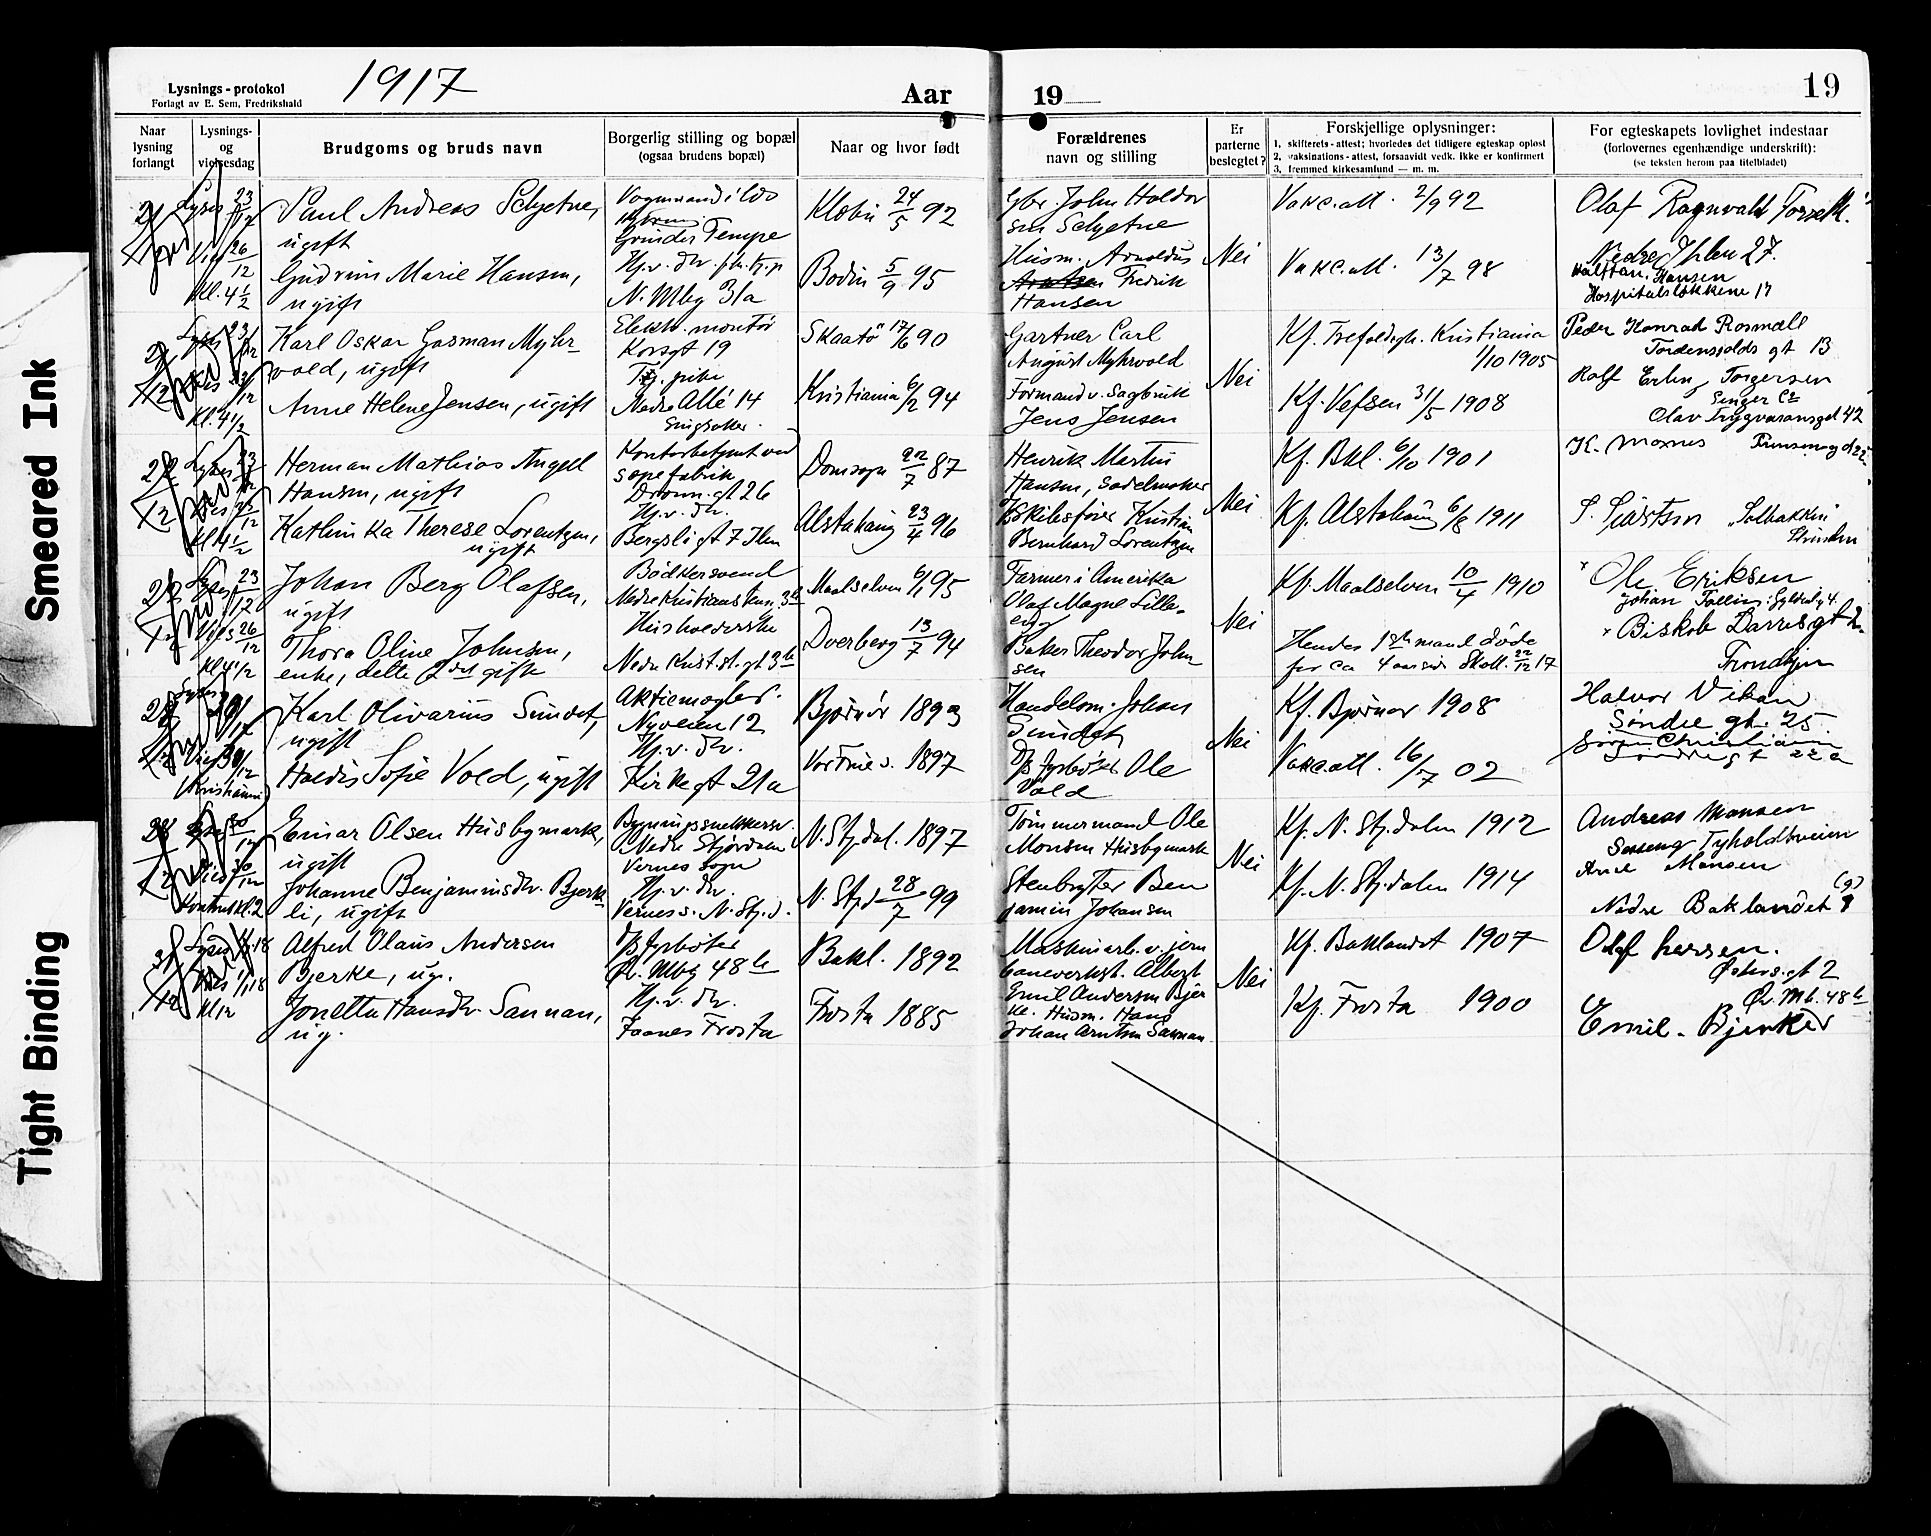 Smeared Ink
Tight Binding
Lysnings-protokol
Forlagt av E. Sem, Fredrikshald
1917
Aar
19
19
Naar lysning forlangt
Lysnings- og vielsesdag
Brudgoms og bruds navn
Borgerlig stilling og bopæl
(ogsaa brudens bopæl)
Naar og hvor født
Forældrenes
navn og stilling
Er parterne beslegtet?
Forskjellige oplysninger:
1. skifterets-attest; hvorledes det tidligere egteskap opløst
2. vaksinations-attest, forsaavidt vedk. ikke er konfirmert
3. fremmed kirkesamfund — m. m.
For egteskapets lovlighet indestaar
(forlovernes egenhændige underskrift):
(se teksten herom paa titelbladet)
Paul Andreas Schjetne,
ugift
Gudrun Marie Hansen,
ugift
Tempe
N. Mbg 31a
Klæbu 24/5 92
Bodin 5/9 95
Gbr. John Haldor
sen Schjetne
Husm. Arnoldus
Fredrik
Hansen
Nei
Vakc.att. 2/9 92
Vakc.att. 13/7 98
Olaf Ragnvald
Nedre Ihlen 27.
Halftan Hansen
Hospitalsløkkene 17
Karl Oskar Gasman Myhr-
vold, ugift
Anne Helene Jensen, ugift
Elektr. montør
Korsgt 19
Tj. pike
Nedre Allé 14
Singsaker
Skaatø 17/6 90
Kristiania 6/2 94
Gartner Carl
August Myhrvold
Formand v. Sagbruk
Jens Jensen
Nei
Kf. Trefoldigh. Kristiania
1/10 1905
Kf. Vefsen 31/5 1908
Peder Konrad Rosmæll
Tordenskjolds gt 13
Rolf Erling Torgersen
Olav Trygvasønsgt 42
Herman Mathias Angell
Hansen, ugift
Kathinka Therese Lorentzen,
ugift
Kontorbetjent ved
sæpefabrik
Dronn. gt 26
Hj. v. dr.
Bergsli gt 7 Ilen
Domsogn 22/7 87
Alstahaug 23/4 96
Henrik Martin
Hansen, Sadelmaker
Kristian
Bernhard Lorentzen
Nei
Kf. Bkl. 6/10 1901
Kf. Alstahaug 6/8 1911
K. Moxnes
"Solbakken"
Strinden
Johan Berg Olafsen,
ugift
Thora Oline Johnsen,
enke, dette 2det gifte
Bødkersvend
Husholderske
Maalselven 6/1 95
Dverberg 13/7 94
Farmer i Amerika
Olaf Magne Lille-
eng
Baker Theodor John
sen
Nei
Kf. Maalselven 10/4 1910
Hendes 1ste mand døde
for ca 4 aar siden Skatt. 22/12 17
Ole Eriksen
Biskop Darres gt
Trondhjem
Karl Olivarius Sundet,
ugift
Haldis Sofie Vold, ugift
Aktiemægler
Nyveien 12
Hj. v. dr.
Kirkegt 21a
Bjørnør 1893
Vor Frue s. 1897
Handelsm. Johan
Sundet
Ole
Vold
Nei
Kf. Bjørnør 1908
Vakc.att. 16/7 02
Halvor Vikan
Søndre gt. 25.
Einar Olsen Husbymark,
ugift
Johanne Benjaminsdtr. Bjerk-
li, ugift
Bygningssnekkersv.
Nedre Stjørdalen
Vernes sogn
Hj. v. dr.
Vernes s. N. Stj. d.
N. Stjdal. 1897
N. Stjd 28/7 99
Tømmermand Ole
Monsen Husbymark
Stenbryter Ben
jamin Johansen
Nei
Kf. N. Stj.dalen 1912
Kf. N. Stj.dalen 1914
Andreas Monsen
Tyholdtveien
Arne Monsen
Nedre Baklandet 9
(9)
Alfred Olaus Andersen
Bjerke, ug.
Jonetta Hansdtr. Sannan,
ug.
Øv. Mbg 48b
Hj. v. dr.
Faanes Frosta
Bakl. 1892
Frosta 1885
Maskinarb. v. jern
baneverkst. Albert
Emil Andersen Bjer
ke. Husm. Hans
Johan Arntsen Sannan
Nei
Kf. Baklandet 1907
Kf. Frosta 1900
Olaf Larsen.
Østers. gt 2
Øv. Mb. 48b
Emil. Bjerke